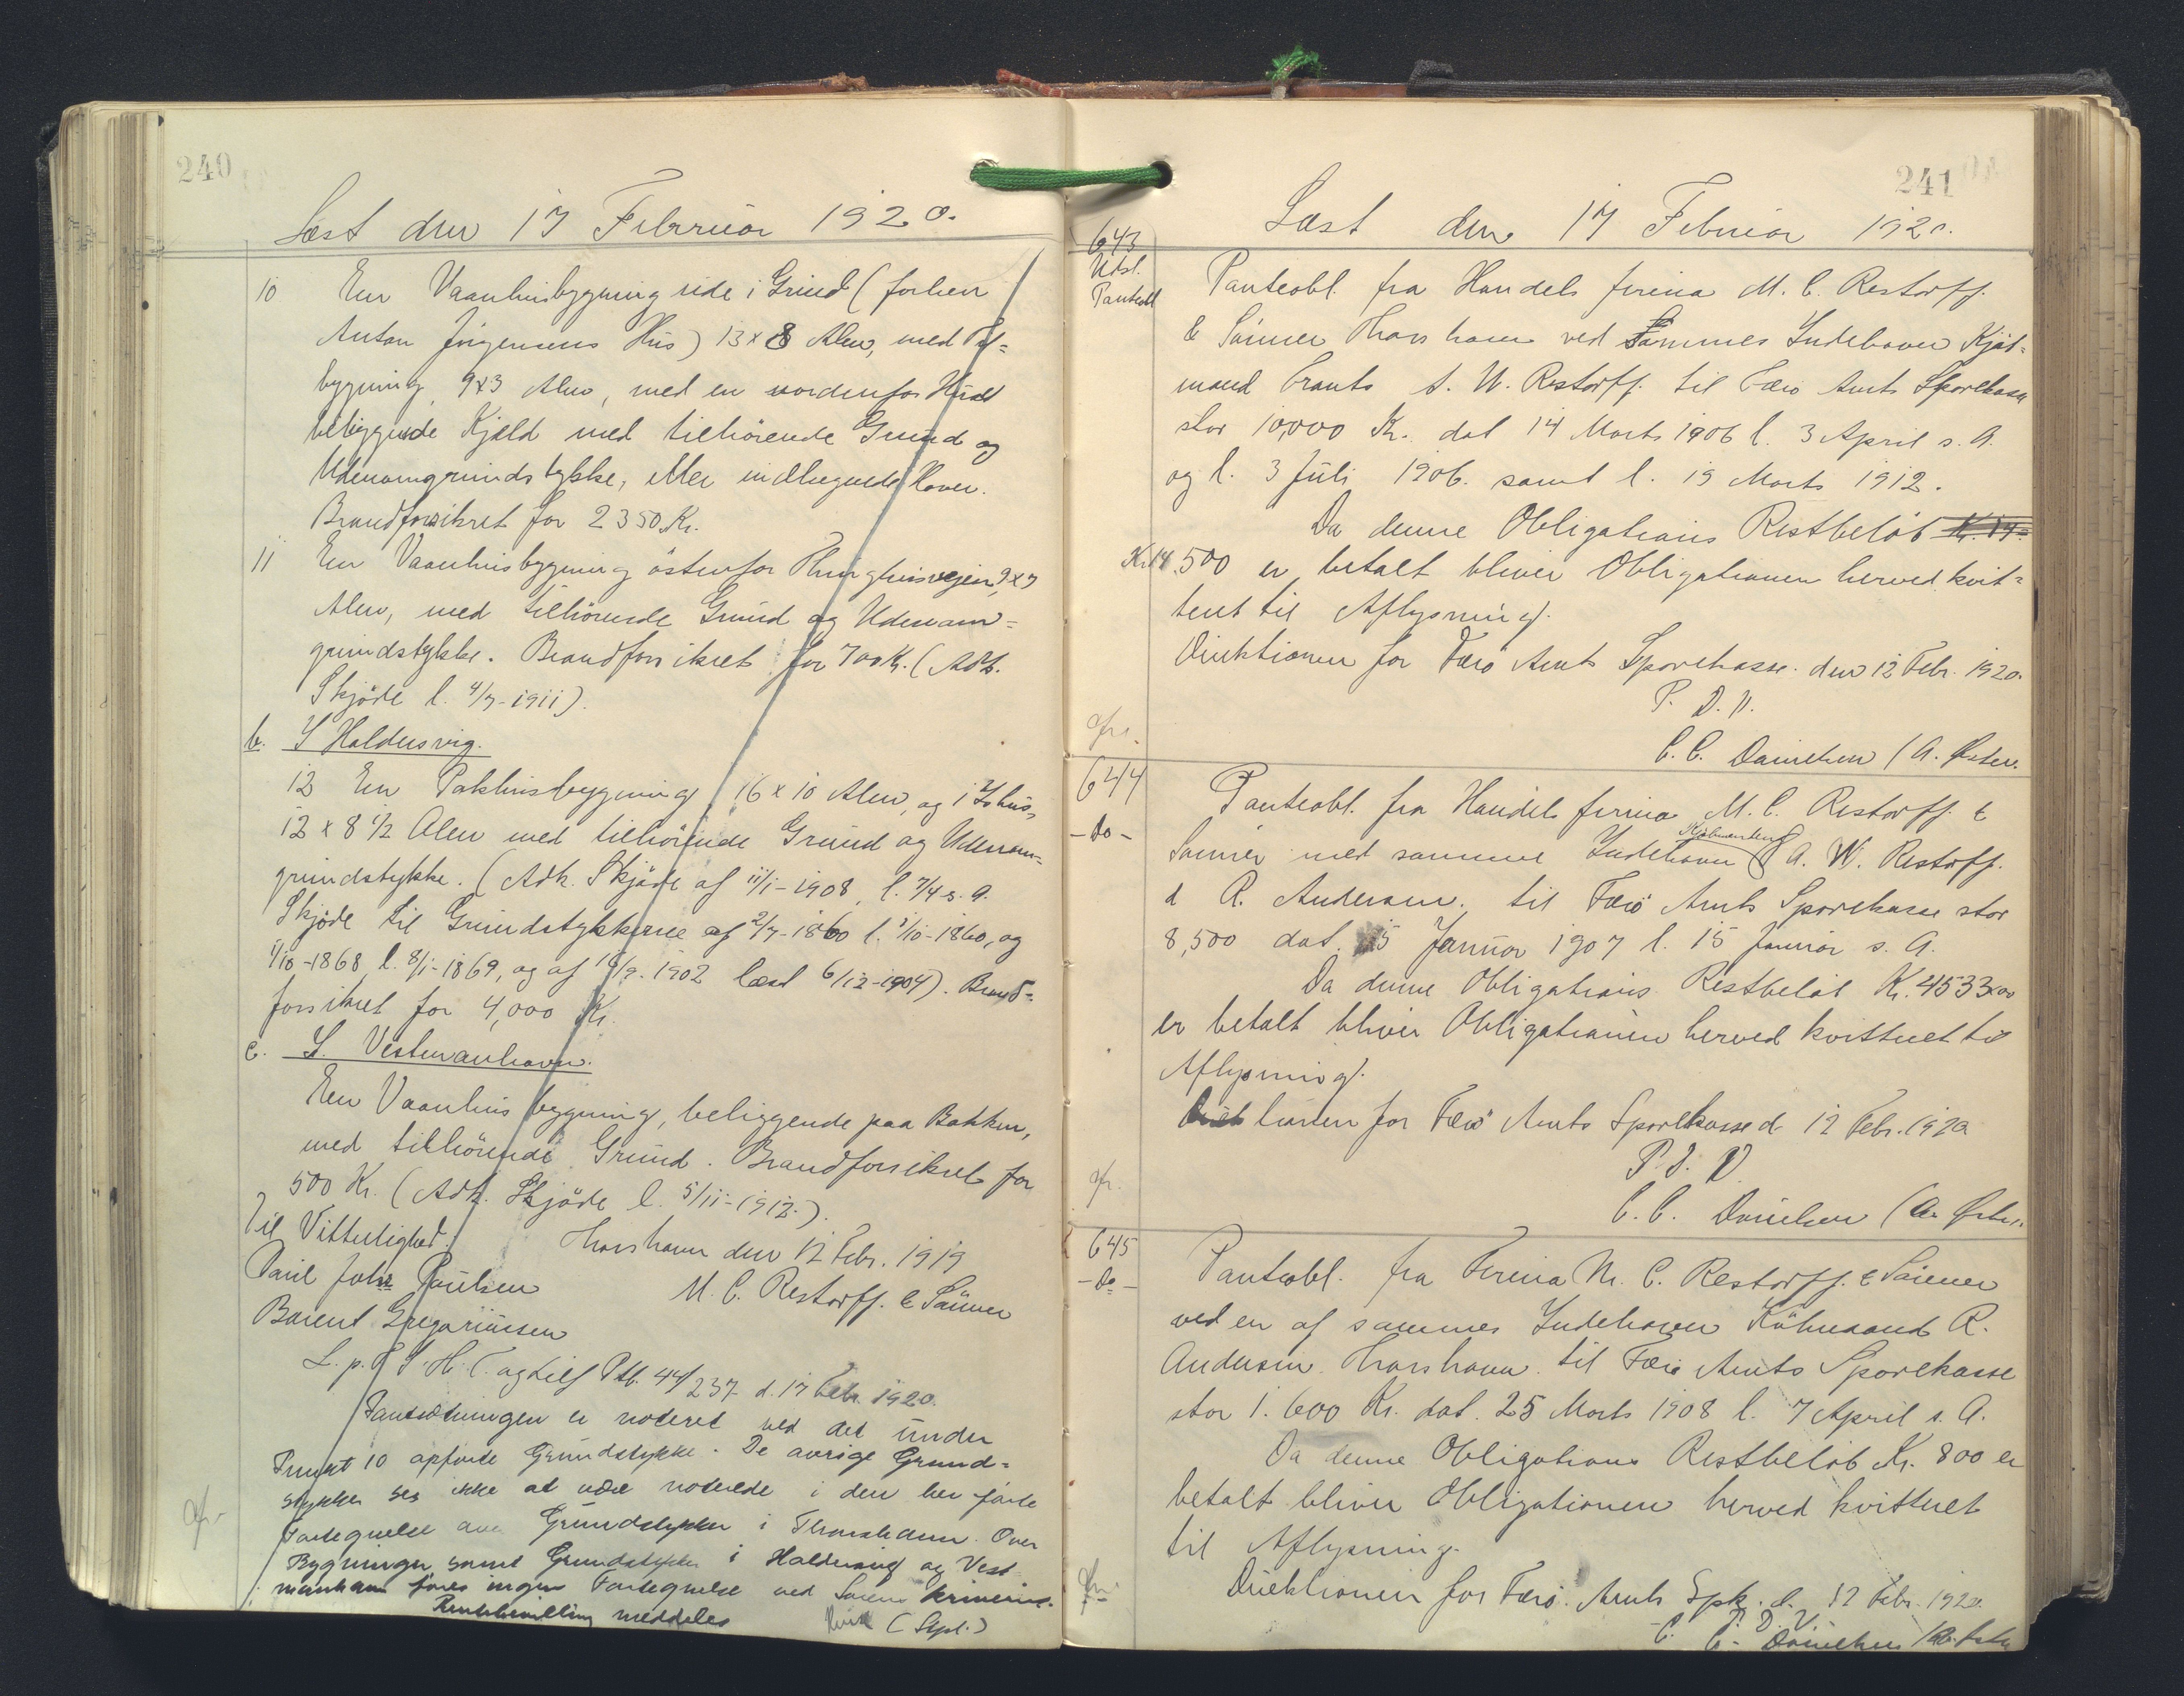 240
Læst den 17 Februar 1920.
10 En Vaanhusbygning ude i Grund (forhen
Anton Jörgensens Hus) 13 x 8 Alen, med
bygning 9x3 Alen, med en nordenfor Huset
beliggende Kjæld med tilhörende Grund og
Udenomgrundstykke, eller indhegnede Haver.
Brandforsikret for 2350 Kr.
11 En Vaanhusbygning östenfor Thinghusvejen, 9x7
Alen, med tilhörende Grund og Udenom=
grundstykke. Brandforsikret for 700 Kr. (Adk.
Skjöde l. 4/7-1911).
b. I Haldersvig.
12 En Pakhusbygning, 16 x 10 Alen, og 1 Ishus,
12 x 8 1/2 Alen med tilhörende Grund og Udenom=
grundstykke. (Adk. Skjöde af 11/1-1908, l. 7/4 s. A.
Skjöde til Grundstykkerne af 2/7-1860 l. 1/10-1860, og
1/10-1868 l. 8/1-1869, og af 1902 læst 6/12-1904). Brand=
forsikret for 4,000 Kr.
c. I. Vestmanhavn.
En Vaanhusbygning, beliggende paa Bakken,
med tilhörende Grund. Brandforsikret for
500 Kr. (Adk. Skjöde l. 5/11-1912.).
Til Vitterlighed. Thorshavn den 12 Febr. 1919
Paul Johs Poulsen M. C. Restorff. & Sönner
Barent Gregoriussen
L. p. F. S. H. T. og tilf Ptb. 44/237 d. 17 Febr. 1920.
Pantsætningen er noteret ved det under
Punkt 10 opförte Grundstykke. De övrige Grund=
stykker ses ikke at være noterede i den her förte
Fortegnelse over Grundstykker i Thorshavn. Over
Bygninger samt Grundstykker i Haldersvig og Vest
manhavn föres ingen Fortegnelse ved Sorenskriveriet.
Rentebevilling meddeles (Stpl.)
241
Læst den 17 Februar 1920.
643
Udsl.
Panteobl
Panteobl. fra Handels firma M. C. Restorff.
& Sönner Thorshavn ved sammes Indehaver Kjöb=
mand Frants A. W. Restorff. til Færö Amts Sparekasse
stor 10,000 Kr. dat 14 Marts 1906 l. 3 April s. A.
og l. 3 Juli 1906. samt l. 19 Marts 1912.
Da denne Obligations Restbelöb Kr. 14=
Kr 14,500 er betalt bliver Obligationen herved kvit=
teret til Aflysning.
Direktionen for Færö Amts Sparekasse. den 12 Febr. 1920.
P. D. V.
C. C. Danielsen / A.
644
- Do -
Panteobl. fra Handels firma M. C. Restorff. &
Sönner med samme Indehaver Kjöbmændene A. W. Restorff.
& R. Andersen. til Færö Amts Sparekasse stor
8,500 dat. 15 Januar 1907 l. 15 Januar s. A.
Da denne Obligations Restbelöb Kr. 4533
er betalt bliver Obligationen herved kvitteret til
Aflysning.
Direktionen for Færö Amts Sparekasse d 12 Febr. 1920
P. D. V
C. C. Danielsen / A.
645
- Do -
Panteobl. fra Firma M. C. Restorff. & Sönner
ved en af sammes Indehavere Köbmand R.
Andersen Thorshavn til Færö Amts Sparekasse
stor 1.600 Kr. dat. 25 Marts 1908 l. 7 April s. A.
Da denne Obligations Restbelöb Kr. 800 er
betalt bliver Obligationen herved kvitteret
til Aflysning.
Direktionen for Færö. Amts Spk. d. 12 Febr. 1920.
P. D. V.
C. C. Danielsen / A.